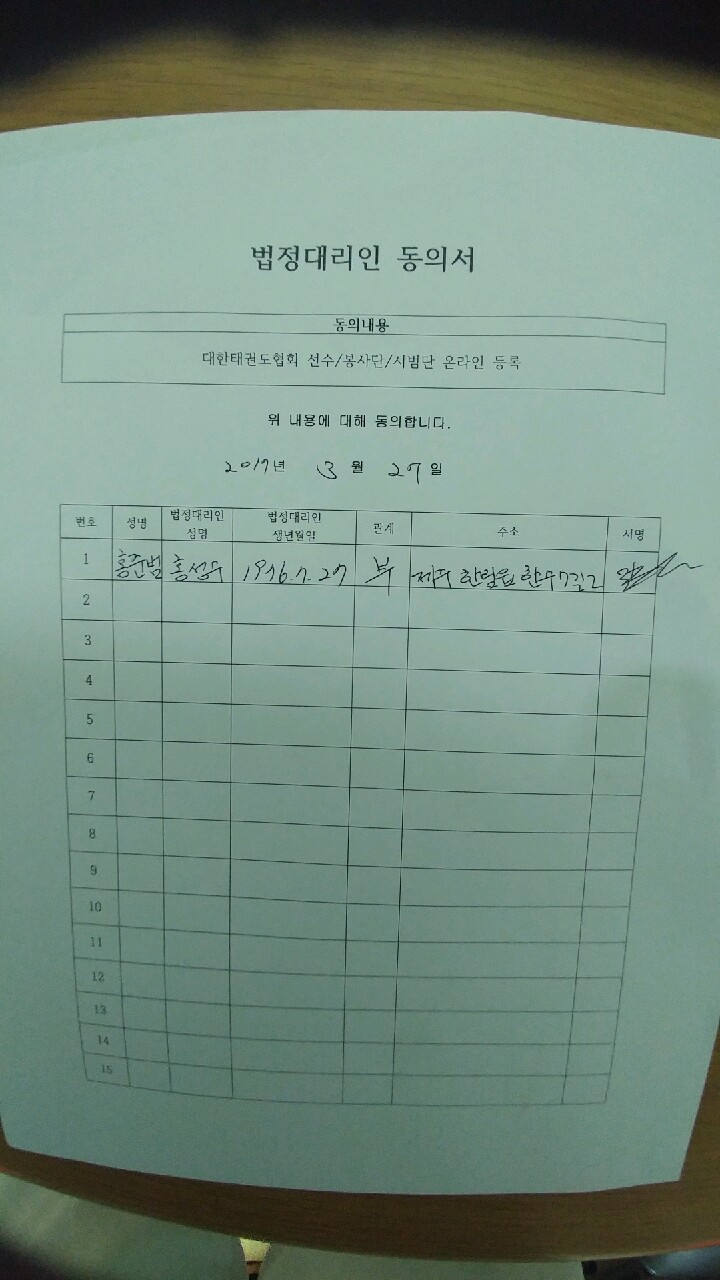 법정대리인 동의서
동의내용
대한태권도협회 선수/봉사단/시범단 온라인 등록
위 내용에 대해 동의합니다.
2017년 3월 27일
번호 성명 법정대리인 성명 법정대리인 생년월일 관계 주소 서명
1 홍준범 홍성우 1976.7.27 부 제주 한림읍 한수7길2
2
3
4
5
6
7
8
9
10
11
12
13
14
15